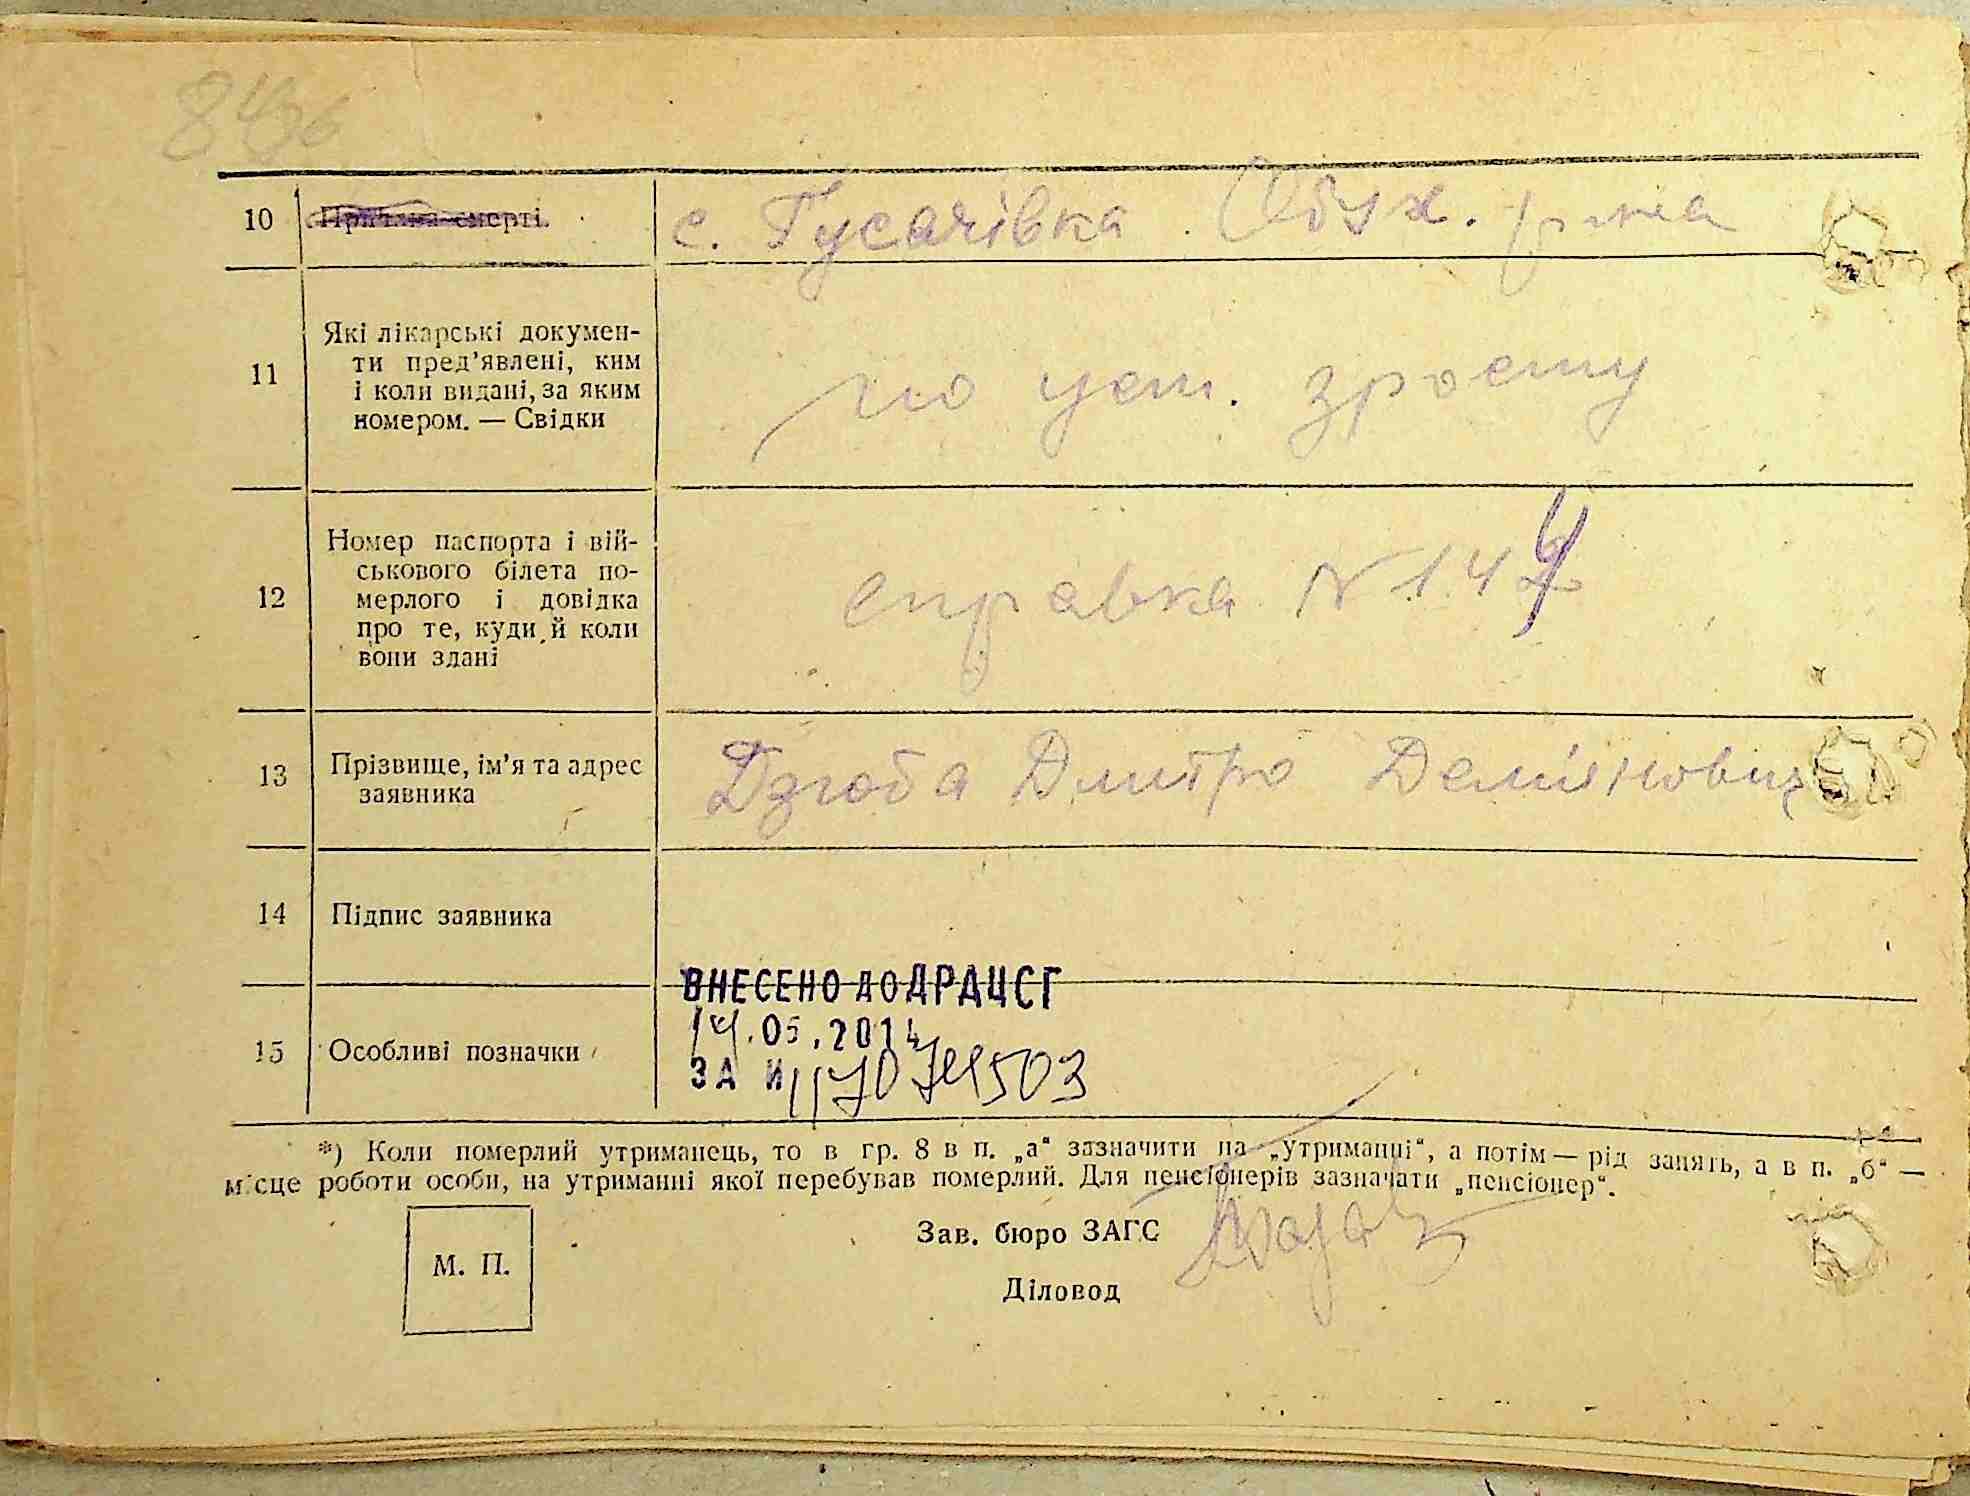 10 Причина смерті. с. Гусачівка Обух. р-на
11 Які лікарські докумен-
ти пред’явлені, ким
і коли видані, за яким
номером. — Свідки
по уст. зросту
12 Номер паспорта і вій-
ськового білета по-
мерлого і довідка
про те, куди й коли
вони здані
справка N 144
13 Прізвище, ім’я та адрес
заявника
Дзюба Дмитро Дем'янович
14 Підпис заявника
15 Особливі позначки
ВНЕСЕНО ДО ДРАЦСГ
14.05.2014
ЗА №
*) Коли померлий утриманець, то в гр. 8 в п. „а“ зазначити на „утриманні“, а потім — рід занять, а в п. „б“ —
місце роботи особи, на утриманні якої перебував померлий. Для пенсіонерів зазначати „пенсіонер“.
М. П.
Зав. бюро ЗАГС
Діловод